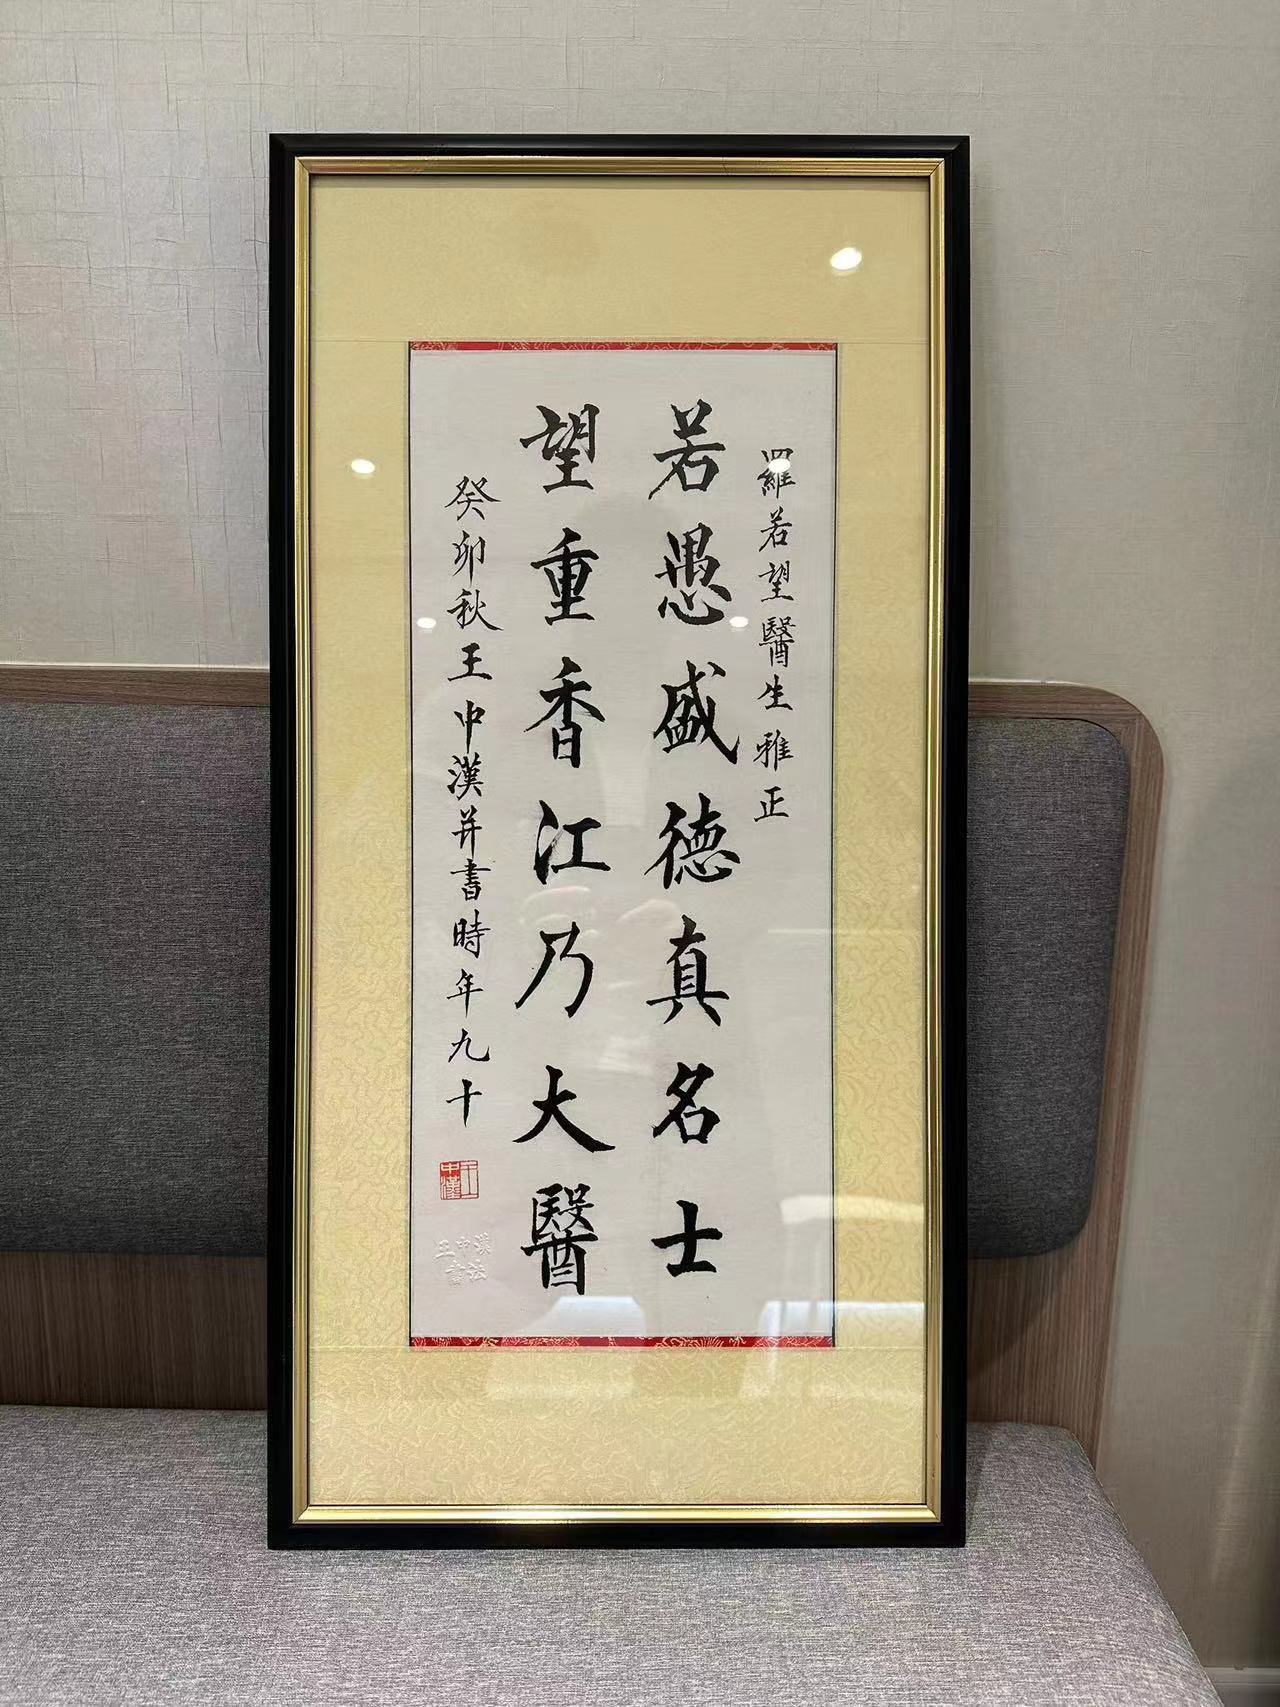 羅若望醫生雅正
若愚盛德真名士
望重香江乃大醫
癸卯秋王中漢并書時年九十
王中漢
王中漢書法